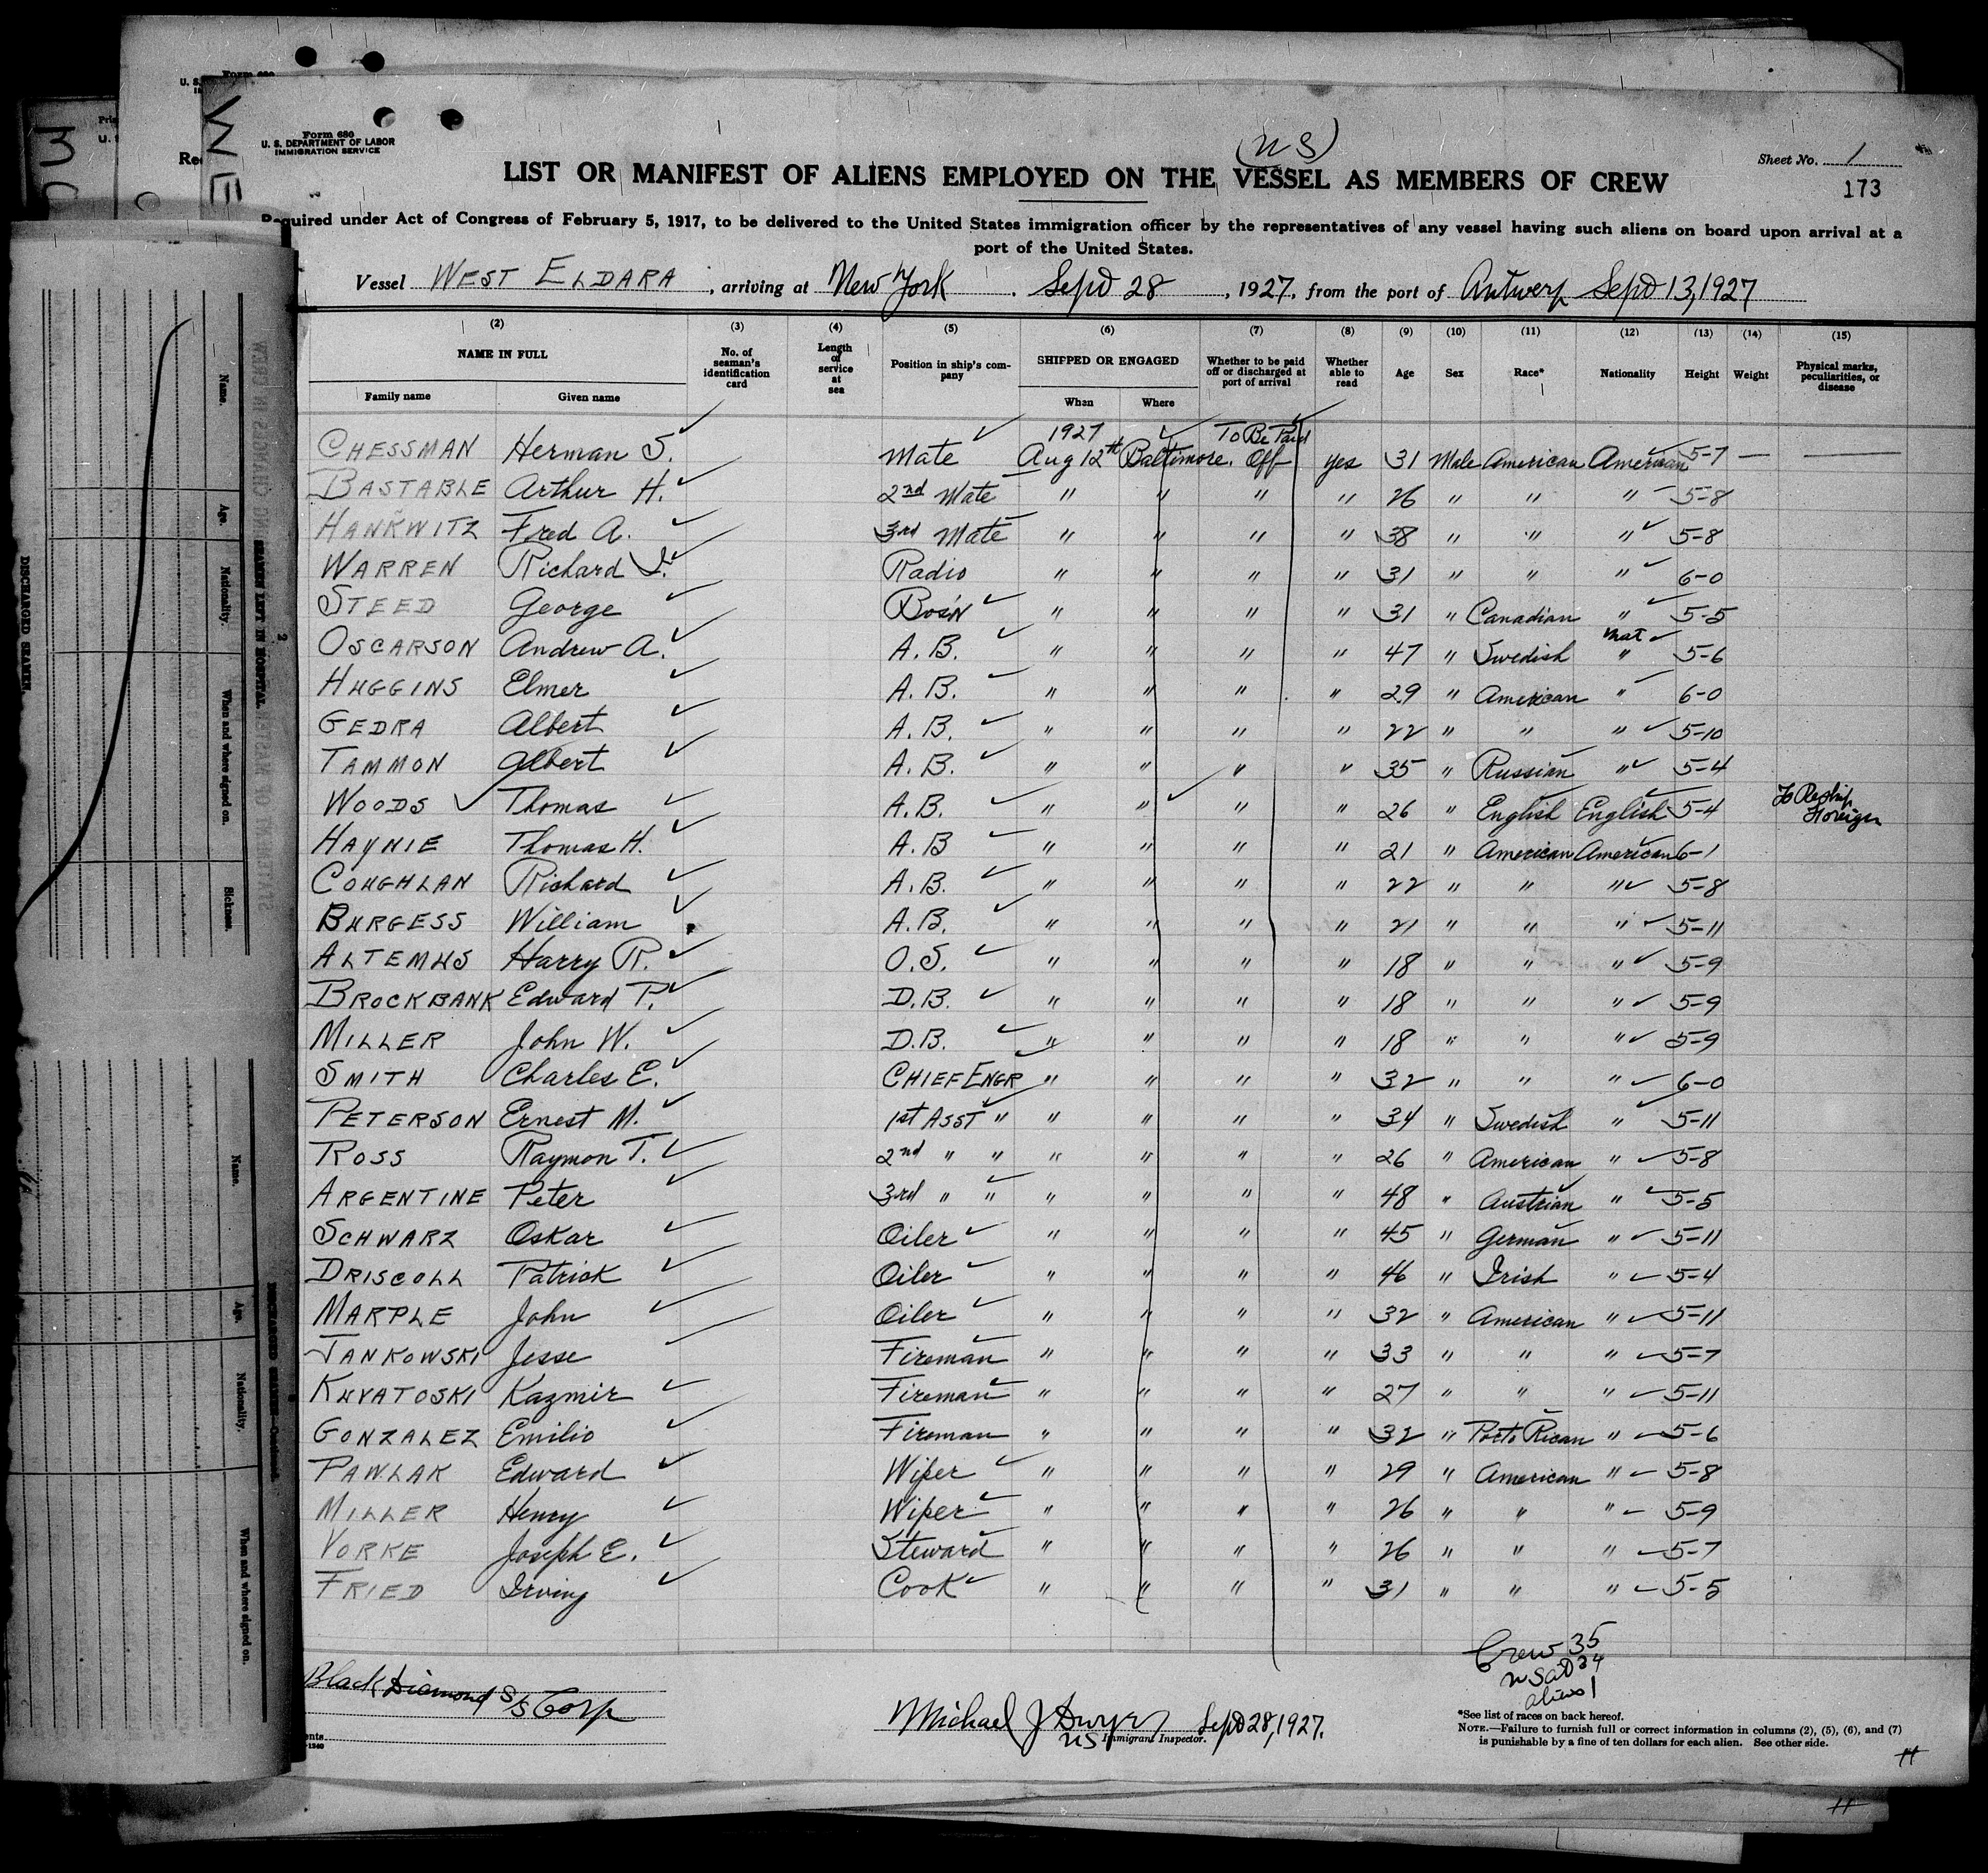 Form 680
U. S. DEPARTMENT OF LABOR
IMMIGRATION SERVICE
(U S)
Sheet No. 1
173
LIST OR MANIFEST OF ALIENS EMPLOYED ON THE VESSEL AS MEMBERS OF CREW
Required under Act of Congress of February 5, 1917, to be delivered to the United States immigration officer by the representatives of any vessel having such aliens on board upon arrival at a
port of the United States.
Vessel WEST ELDARA, arriving at New York. Sept 28, 1927, from the port of Antwerp Sept 13, 1927
(2) (3) (4) (5) (6) (7) (8) (9) (10) (11) (12) (13) (14) (15)
NAME IN FULL
Family name Given name
No. of seaman's identification card
Length of service at sea
Position in ship's company
SHIPPED OR ENGAGED
When Where
Whether to be paid off or discharged at port of arrival
Whether able to read
Age Sex Race* Nationality Height Weight
Physical marks, peculiarities, or disease
1927 To Be Paid
CHESSMAN Herman S. Mate Aug 12th Baltimore. Off yes 31 Male American American 5-7 —
BASTABLE Arthur H. 2nd Mate " " " " 26 " " " 5-8
HANKWITZ Fred A. 3rd Mate " " " " 38 " " " 5-8
WARREN Richard Radio " " " " 31 " " " 6-0
STEED George Bos'n " " " " 31 " Canadian " 5-5
OSCARSON Andrew A. A.B. " " " " 47 " Swedish Nat " 5-6
HUGGINS Elmer A.B. " " " " 29 " American " 6-0
GEDRA Albert A.B. " " " " 22 " " " 5-10
TAMMON Albert A.B. " " " " 35 " Russian " 5-4
WOODS Thomas A.B. " " " " 26 " English English 5-4 To Reship Foreign
HAYNIE Thomas H. A.B " " " " 21 " American American 6-1
COUGHLAN Richard A.B. " " " " 22 " " " 5-8
BURGESS William A.B. " " " " 21 " " " 5-11
ALTEMUS Harry R. O.S. " " " " 18 " " " 5-9
BROCKBANK Edward P. D.B. " " " " 18 " " " 5-9
MILLER John W. D.B. " " " " 18 " " " 5-9
SMITH Charles E. CHIEF ENGR " " " " 32 " " " 6-0
PETERSON Ernest M. 1st ASST " " " " " 34 " Swedish " 5-11
ROSS Raymon T. 2nd " " " " " " 26 " American " 5-8
ARGENTINE Peter 3rd " " " " " " 48 " Austrian " 5-5
SCHWARZ Oskar Oiler " " " " 45 " German " 5-11
DRISCOLL Patrick Oiler " " " " 46 " Irish " 5-4
MARPLE John Oiler " " " " 32 " American " 5-11
JANKOWSKI Jesse Fireman " " " " 33 " " " 5-7
KUVATOSKI Kazmir Fireman " " " " 27 " " " 5-11
GONZALEZ Emilio Fireman " " " " 32 " Porto Rican " 5-6
PAWLAK Edward Wiper " " " " 29 " American " 5-8
MILLER Henry Wiper " " " " 26 " " " 5-9
YORKE Joseph E. Steward " " " " 26 " " " 5-7
FRIED Irving Cook " " " " 31 " " " 5-5
Crew 35
34
aliens 1
Black Diamond S/S Corp
Michael J Dwyer Sept 28, 1927.
US Immigrant Inspector.
*See list of races on back hereof.
NOTE.—Failure to furnish full or correct information in columns (2), (5), (6), and (7)
is punishable by a fine of ten dollars for each alien. See other side.
DISCHARGED SEAMEN
SEAMEN LEFT IN HOSPITAL
Name.
Age.
Nationality.
When and where signed on.
Sickness.
Name.
Age.
Nationality.
When and where signed on.